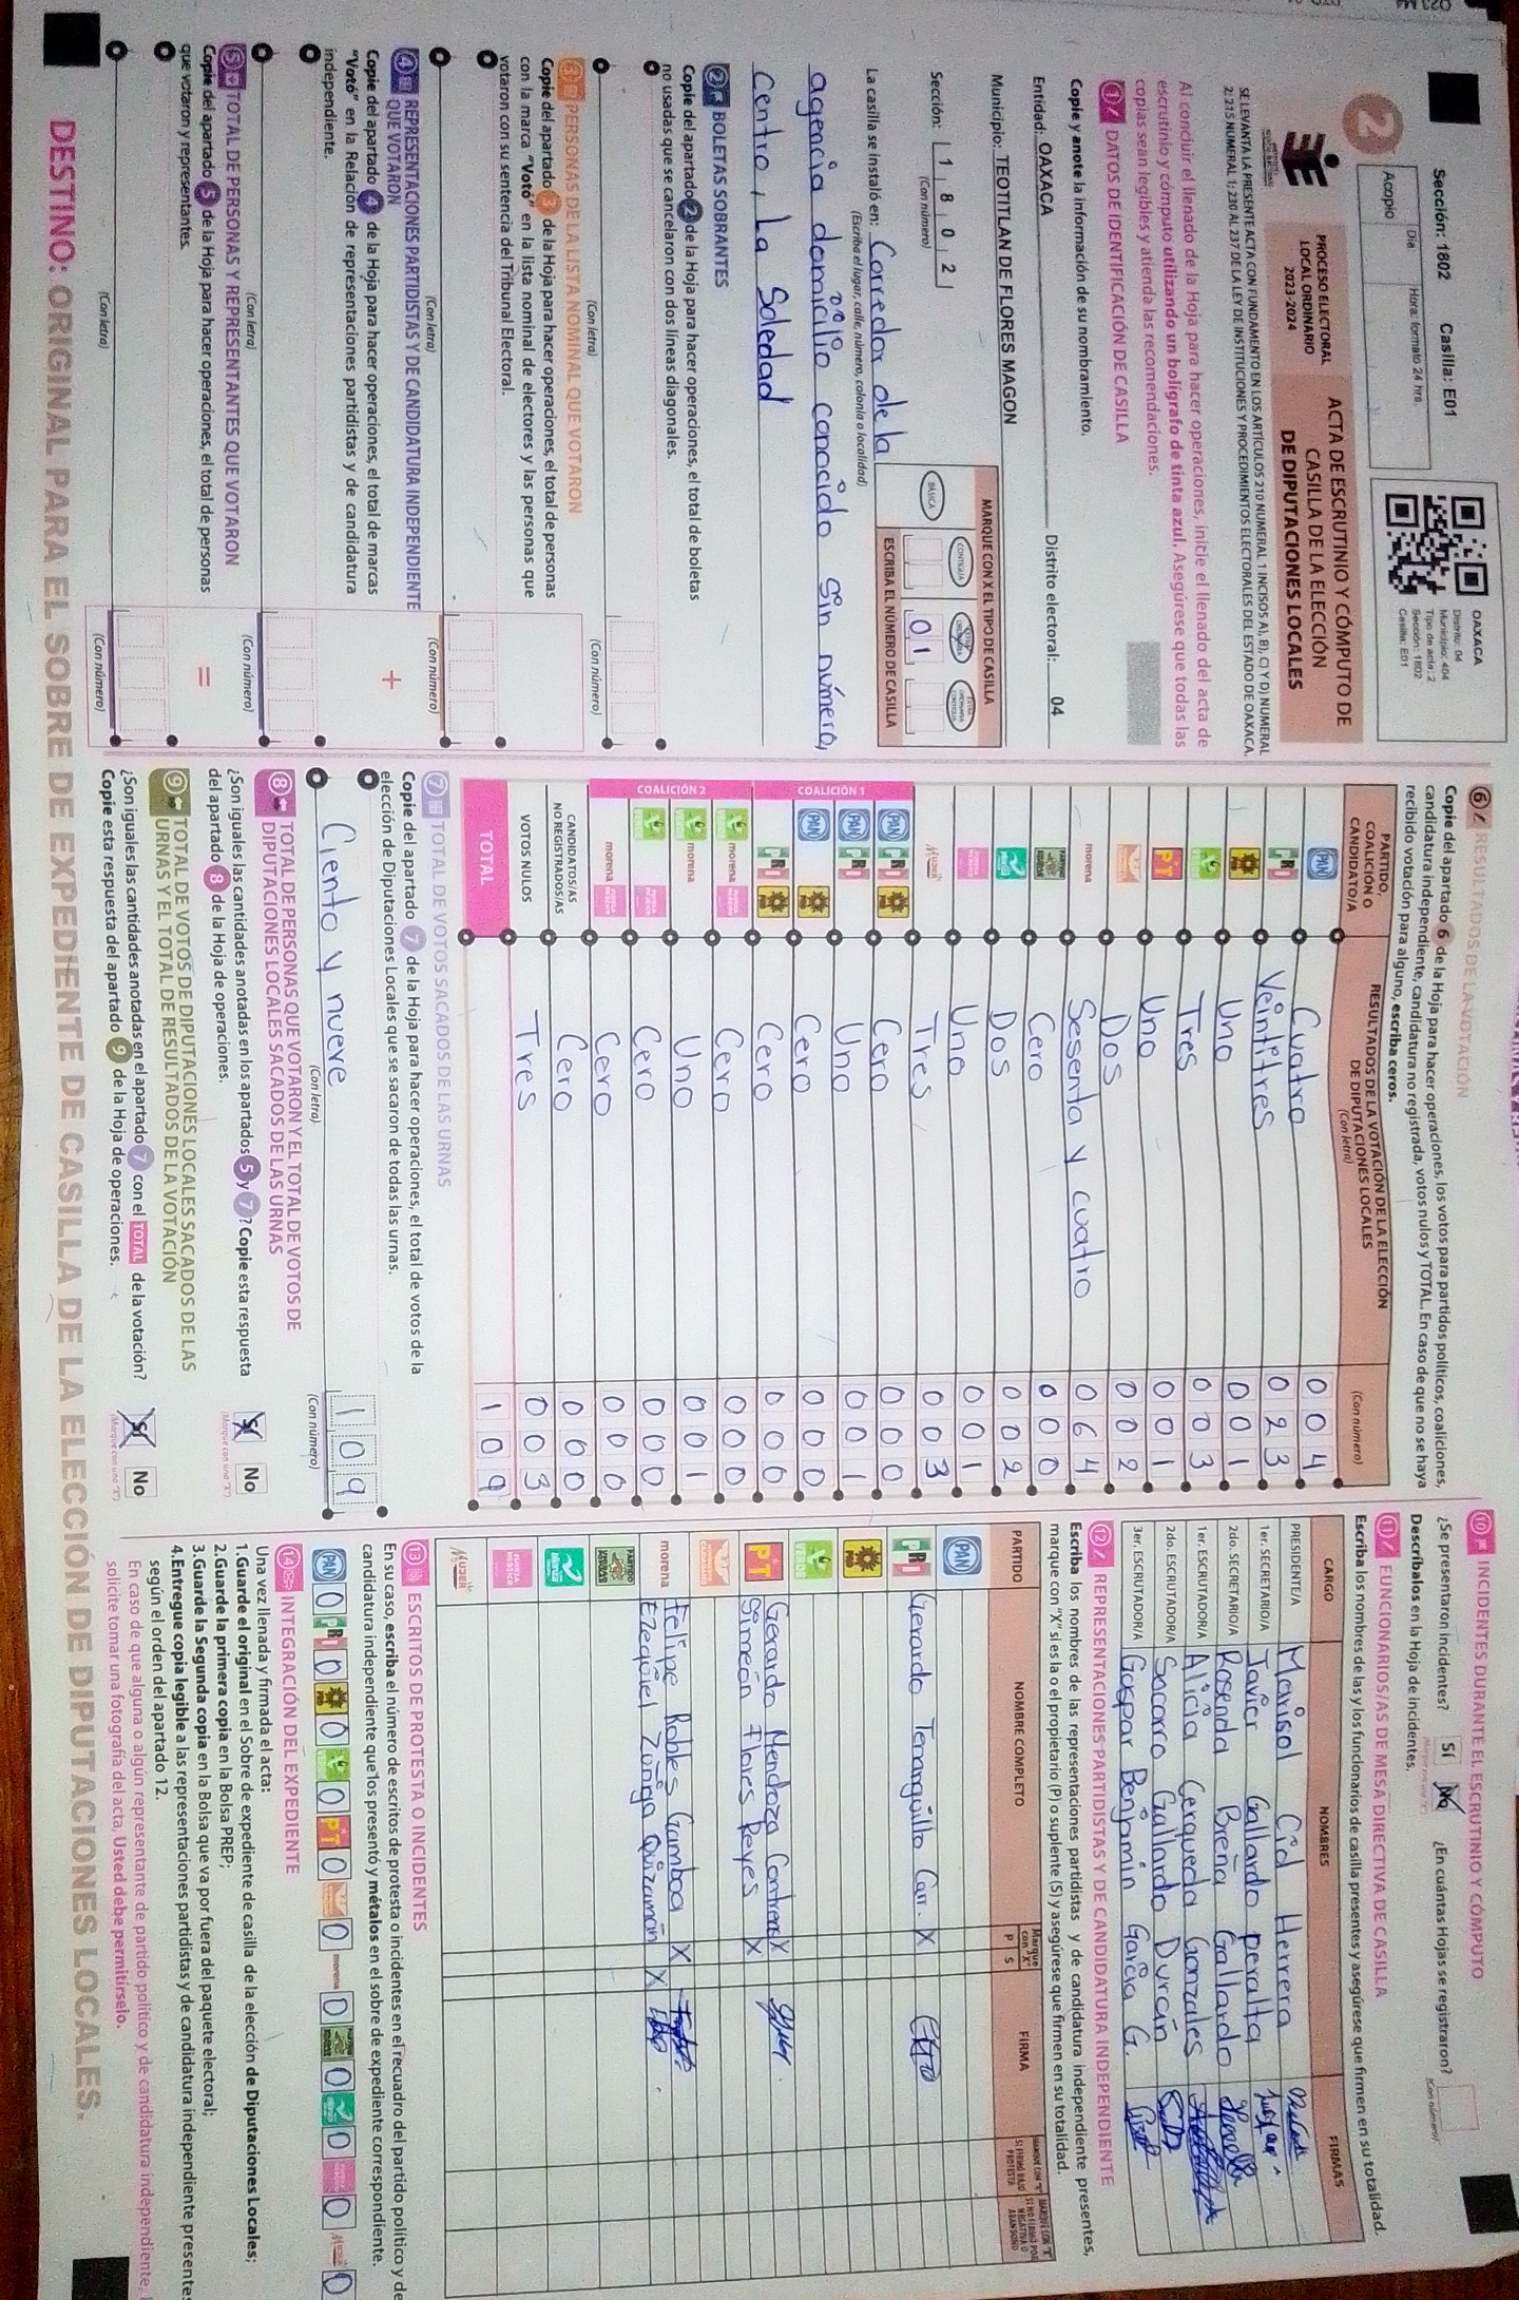 Sección: 1802 Casilla: E01
Día Hora: formato 24 hrs.
Acopio
OAXACA
Distrito: 04
Municipio: 404
Tipo de acta: 2
Sección: 1802
Casilla: E01
2
PROCESO ELECTORAL
LOCAL ORDINARIO
2023-2024
ACTA DE ESCRUTINIO Y CÓMPUTO DE
CASILLA DE LA ELECCIÓN
DE DIPUTACIONES LOCALES
SE LEVANTA LA PRESENTE ACTA CON FUNDAMENTO EN LOS ARTÍCULOS 210 NUMERAL 1 INCISOS A), B), C) Y D) NUMERAL
2; 215 NUMERAL 1; 230 AL 237 DE LA LEY DE INSTITUCIONES Y PROCEDIMIENTOS ELECTORALES DEL ESTADO DE OAXACA.
Al concluir el llenado de la Hoja para hacer operaciones, inicie el llenado del acta de
escrutinio y cómputo utilizando un bolígrafo de tinta azul. Asegúrese que todas las
copias sean legibles y atienda las recomendaciones.
1 DATOS DE IDENTIFICACIÓN DE CASILLA
Copie y anote la información de su nombramiento.
Entidad: OAXACA Distrito electoral: 04
Municipio: TEOTITLAN DE FLORES MAGON
Sección: 1 8 0 2
(Con número)
MARQUE CON X EL TIPO DE CASILLA
BÁSICA CONTIGUA
0 1
ESCRIBA EL NÚMERO DE CASILLA
La casilla se instaló en: Corredor de la
(Escriba el lugar, calle, número, colonia o localidad)
agencia domicilio conocido sin número,
centro, La Soledad
2 BOLETAS SOBRANTES
Copie del apartado 2 de la Hoja para hacer operaciones, el total de boletas
no usadas que se cancelaron con dos líneas diagonales.
(Con letra) (Con número)
3 PERSONAS DE LA LISTA NOMINAL QUE VOTARON
Copie del apartado 3 de la Hoja para hacer operaciones, el total de personas
con la marca "Votó" en la lista nominal de electores y las personas que
votaron con su sentencia del Tribunal Electoral.
(Con letra) (Con número)
4 REPRESENTACIONES PARTIDISTAS Y DE CANDIDATURA INDEPENDIENTE
QUE VOTARON
Copie del apartado 4 de la Hoja para hacer operaciones, el total de marcas
"Votó" en la Relación de representaciones partidistas y de candidatura
independiente.
+
(Con letra) (Con número)
5 TOTAL DE PERSONAS Y REPRESENTANTES QUE VOTARON
Copie del apartado 5 de la Hoja para hacer operaciones, el total de personas
que votaron y representantes.
=
(Con letra) (Con número)
6 RESULTADOS DE LA VOTACIÓN
Copie del apartado 6 de la Hoja para hacer operaciones, los votos para partidos políticos, coaliciones,
candidatura independiente, candidatura no registrada, votos nulos y TOTAL. En caso de que no se haya
recibido votación para alguno, escriba ceros.
PARTIDO,
COALICIÓN O
CANDIDATO/A
RESULTADOS DE LA VOTACIÓN DE LA ELECCIÓN
DE DIPUTACIONES LOCALES
(Con letra) (Con número)
PAN Cuatro 0 0 4
PRI Veintitres 0 2 3
PRD Uno 0 0 1
Tres 0 0 3
PT Uno 0 0 1
Dos 0 0 2
morena Sesenta y cuatro 0 6 4
Cero 0 0 0
Dos 0 0 2
Uno 0 0 1
MUJER Tres 0 0 3
COALICIÓN 1
PAN PRI PRD Cero 0 0 0
PAN PRI Uno 0 0 1
PAN PRD Cero 0 0 0
PRI PRD Cero 0 0 0
COALICIÓN 2
morena Cero 0 0 0
morena Uno 0 0 1
Cero 0 0 0
morena Cero 0 0 0
CANDIDATOS/AS
NO REGISTRADOS/AS Cero 0 0 0
VOTOS NULOS Tres 0 0 3
TOTAL 1 0 9
7 TOTAL DE VOTOS SACADOS DE LAS URNAS
Copie del apartado 7 de la Hoja para hacer operaciones, el total de votos de la
elección de Diputaciones Locales que se sacaron de todas las urnas.
Ciento y nueve 1 0 9
(Con letra) (Con número)
8 TOTAL DE PERSONAS QUE VOTARON Y EL TOTAL DE VOTOS DE
DIPUTACIONES LOCALES SACADOS DE LAS URNAS
¿Son iguales las cantidades anotadas en los apartados 5 y 7? Copie esta respuesta
del apartado 8 de la Hoja de operaciones.
Sí No
(Marque con una "X")
9 TOTAL DE VOTOS DE DIPUTACIONES LOCALES SACADOS DE LAS
URNAS Y EL TOTAL DE RESULTADOS DE LA VOTACIÓN
¿Son iguales las cantidades anotadas en el apartado 7 con el TOTAL de la votación?
Copie esta respuesta del apartado 9 de la Hoja de operaciones.
Sí No
(Marque con una "X")
10 INCIDENTES DURANTE EL ESCRUTINIO Y CÓMPUTO
¿Se presentaron incidentes? Sí No ¿En cuántas Hojas se registraron?
(Con número)
Descríbalos en la Hoja de incidentes.
11 FUNCIONARIOS/AS DE MESA DIRECTIVA DE CASILLA
Escriba los nombres de las y los funcionarios de casilla presentes y asegúrese que firmen en su totalidad.
CARGO NOMBRES FIRMAS
PRESIDENTE/A Marisol Cid Herrera
1er. SECRETARIO/A Javier Gallardo peralta
2do. SECRETARIO/A Rosenda Breña Gallardo
1er. ESCRUTADOR/A Alicia Cerqueda Gonzales
2do. ESCRUTADOR/A Socorro Gallardo Durán
3er. ESCRUTADOR/A Gaspar Benjamin Garcia G.
12 REPRESENTACIONES PARTIDISTAS Y DE CANDIDATURA INDEPENDIENTE
Escriba los nombres de las representaciones partidistas y de candidatura independiente presentes,
marque con "X" si es la o el propietario (P) o suplente (S) y asegúrese que firmen en su totalidad.
PARTIDO NOMBRE COMPLETO Marque con "X" P S FIRMA
PAN
PRI Gerardo Terranquillo Carr. X
PRD
VERDE
PT Gerardo Mendoza Contreras X
Simeón Flores Reyes X
morena Felipe Robles Gamboa X
Ezequiel Zuñiga Quizaman X
MUJER
13 ESCRITOS DE PROTESTA O INCIDENTES
En su caso, escriba el número de escritos de protesta o incidentes en el recuadro del partido político y de
candidatura independiente que los presentó y métalos en el sobre de expediente correspondiente.
PAN 0 PRI 0 PRD 0 0 PT 0 0 morena 0 0 0 0 MUJER 0
14 INTEGRACIÓN DEL EXPEDIENTE
Una vez llenada y firmada el acta:
1.Guarde el original en el Sobre de expediente de casilla de la elección de Diputaciones Locales;
2.Guarde la primera copia en la Bolsa PREP;
3.Guarde la Segunda copia en la Bolsa que va por fuera del paquete electoral;
4.Entregue copia legible a las representaciones partidistas y de candidatura independiente presentes
según el orden del apartado 12.
En caso de que alguna o algún representante de partido político y de candidatura independiente,
solicite tomar una fotografía del acta, Usted debe permitírselo.
DESTINO: ORIGINAL PARA EL SOBRE DE EXPEDIENTE DE CASILLA DE LA ELECCIÓN DE DIPUTACIONES LOCALES.